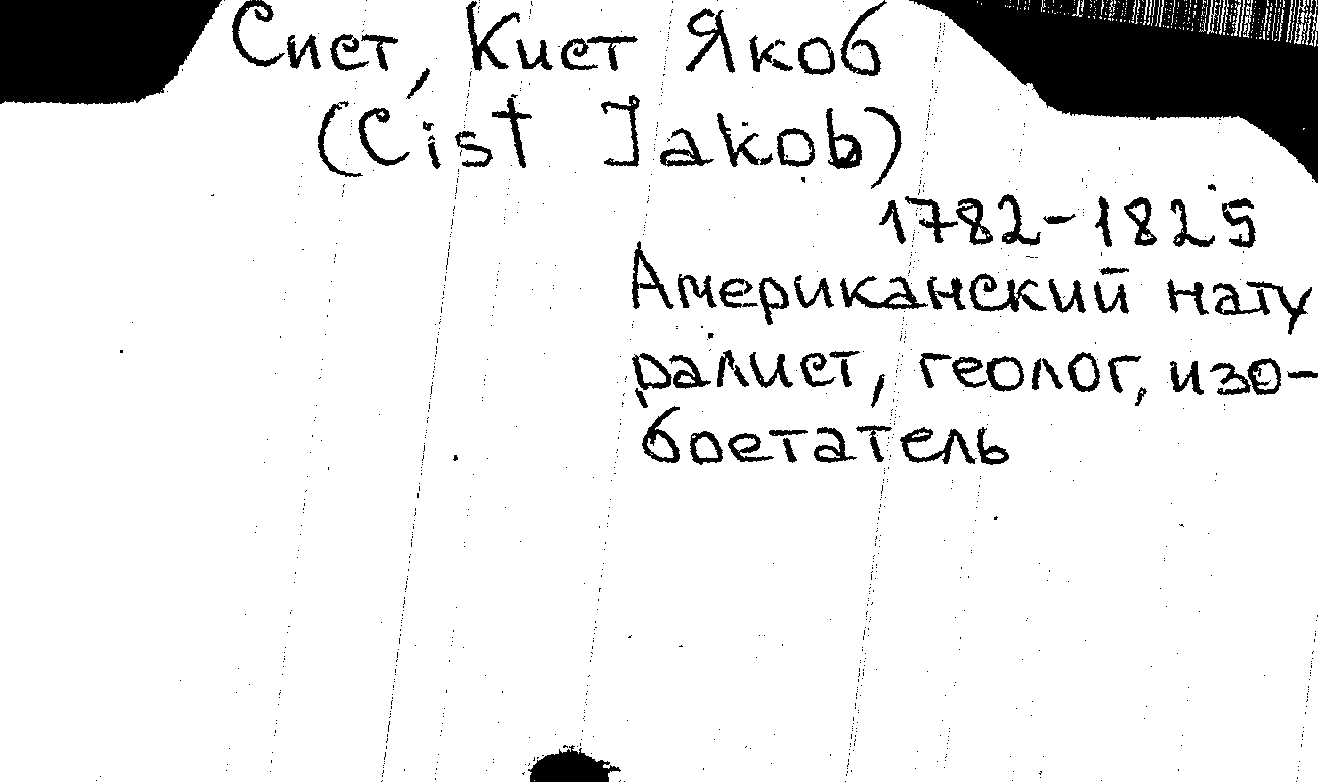 Сист, Кист Якоб
(Cist Jakob)
1782-1825
Американский нату
ралист, геолог, изо-
бретатель